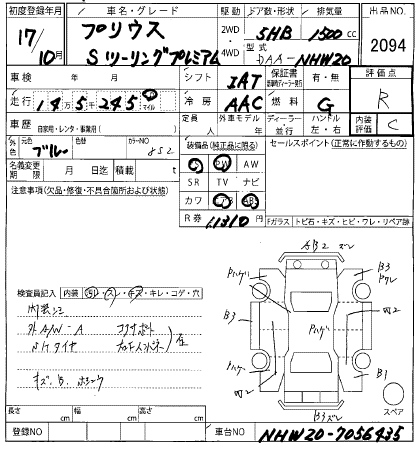 初度登録年月
車名・グレード
ドア数・形状
排気量
出品NO
17/10月
プリウス
Sツーリングプレミアム
2WD
4WD
5HB
1500 cc
型式
DAA-NHW20
2094
車検
年 月
シフト
IAT
保証書
有・無
評価点
走行
14万5千245
マイル
冷房
AAC
燃料
G
R
車歴
自家用・レンタ・事業用( )
定員
人
外車モデル
年
ディーラー
並行
ハンドル
左・右
内装評価
C
外色
元色
ブルー
色替
カラーNO
852
装備品(純正品に限る)
セールスポイント(正常に作動するもの)
PS PW AW
SR TV ナビ
カワ エアB ABS
名義変更期限
月 日迄
積載
t
注意事項(欠品・修復・不具合箇所および状態)
R券
11310円
Fガラス
トビ石・キズ・ヒビ・ワレ・リペア跡
検査員記入
内装
汚レ・スレ・キズ・キレ・コゲ・穴
外A/W-A
長さ cm
幅 cm
高さ cm
スペア
登録NO
車台NO
NHW20-7056435
AB2 ズレ
Pハゲ
B3
Pハゲ
B3
Pハゲ
Pハゲ
B1
B3ズレ